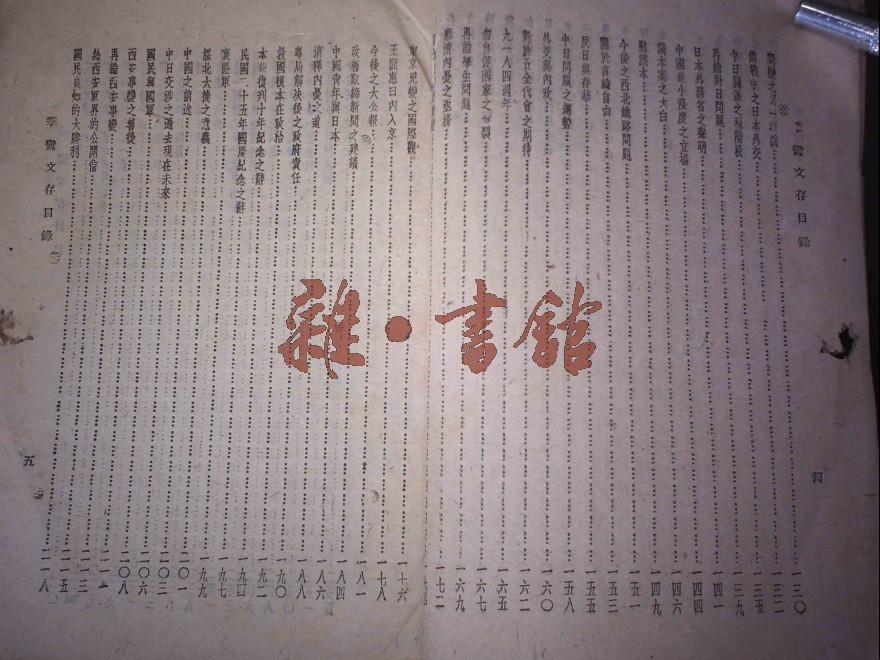 季鸞文存目錄
四
之又一計劃 一三〇
備戰中之日本外交 一三二
中日關係之現階段 一三五
日本外務省之聲明 一三九
再論對日問題 一四一
中國最小限度之立場 一四四
藏本案之大白 一四六
一四九
今後之西北鐵路問題 一五一
關於言論自由 一五三
反日與存華 一五五
中日問題之趨勢 一五八
外交與內政 一六〇
對於五全代會之期待 一六二
九一八四週年 一六五
勿自促國家之分裂 一六七
再論學生問題 一六九
廓清內憂之亟務 一七二
東京兇變之國際觀 一七六
王寵惠日內入京 一七八
今後之大公報 一八一
改善取締新聞之建議 一八四
中國青年與日本 一八六
消弭內憂之道 一八八
粵局解決後之政府責任 一九〇
救國根本在政治 一九二
本報復刊十年紀念之辭 一九四
民國二十五年國慶紀念之辭 一九七
東征軍 一九九
綏北大捷之意義 二〇一
中國之前途 二〇三
中日交涉之過去現在未來 二〇六
國民與國軍 二〇八
西安事變之善後 二一一
再論西安事變 二一三
給西安軍界的公開信 二一五
國民良知的大勝利 二一八
季鸞文存目錄
五
雜·書館